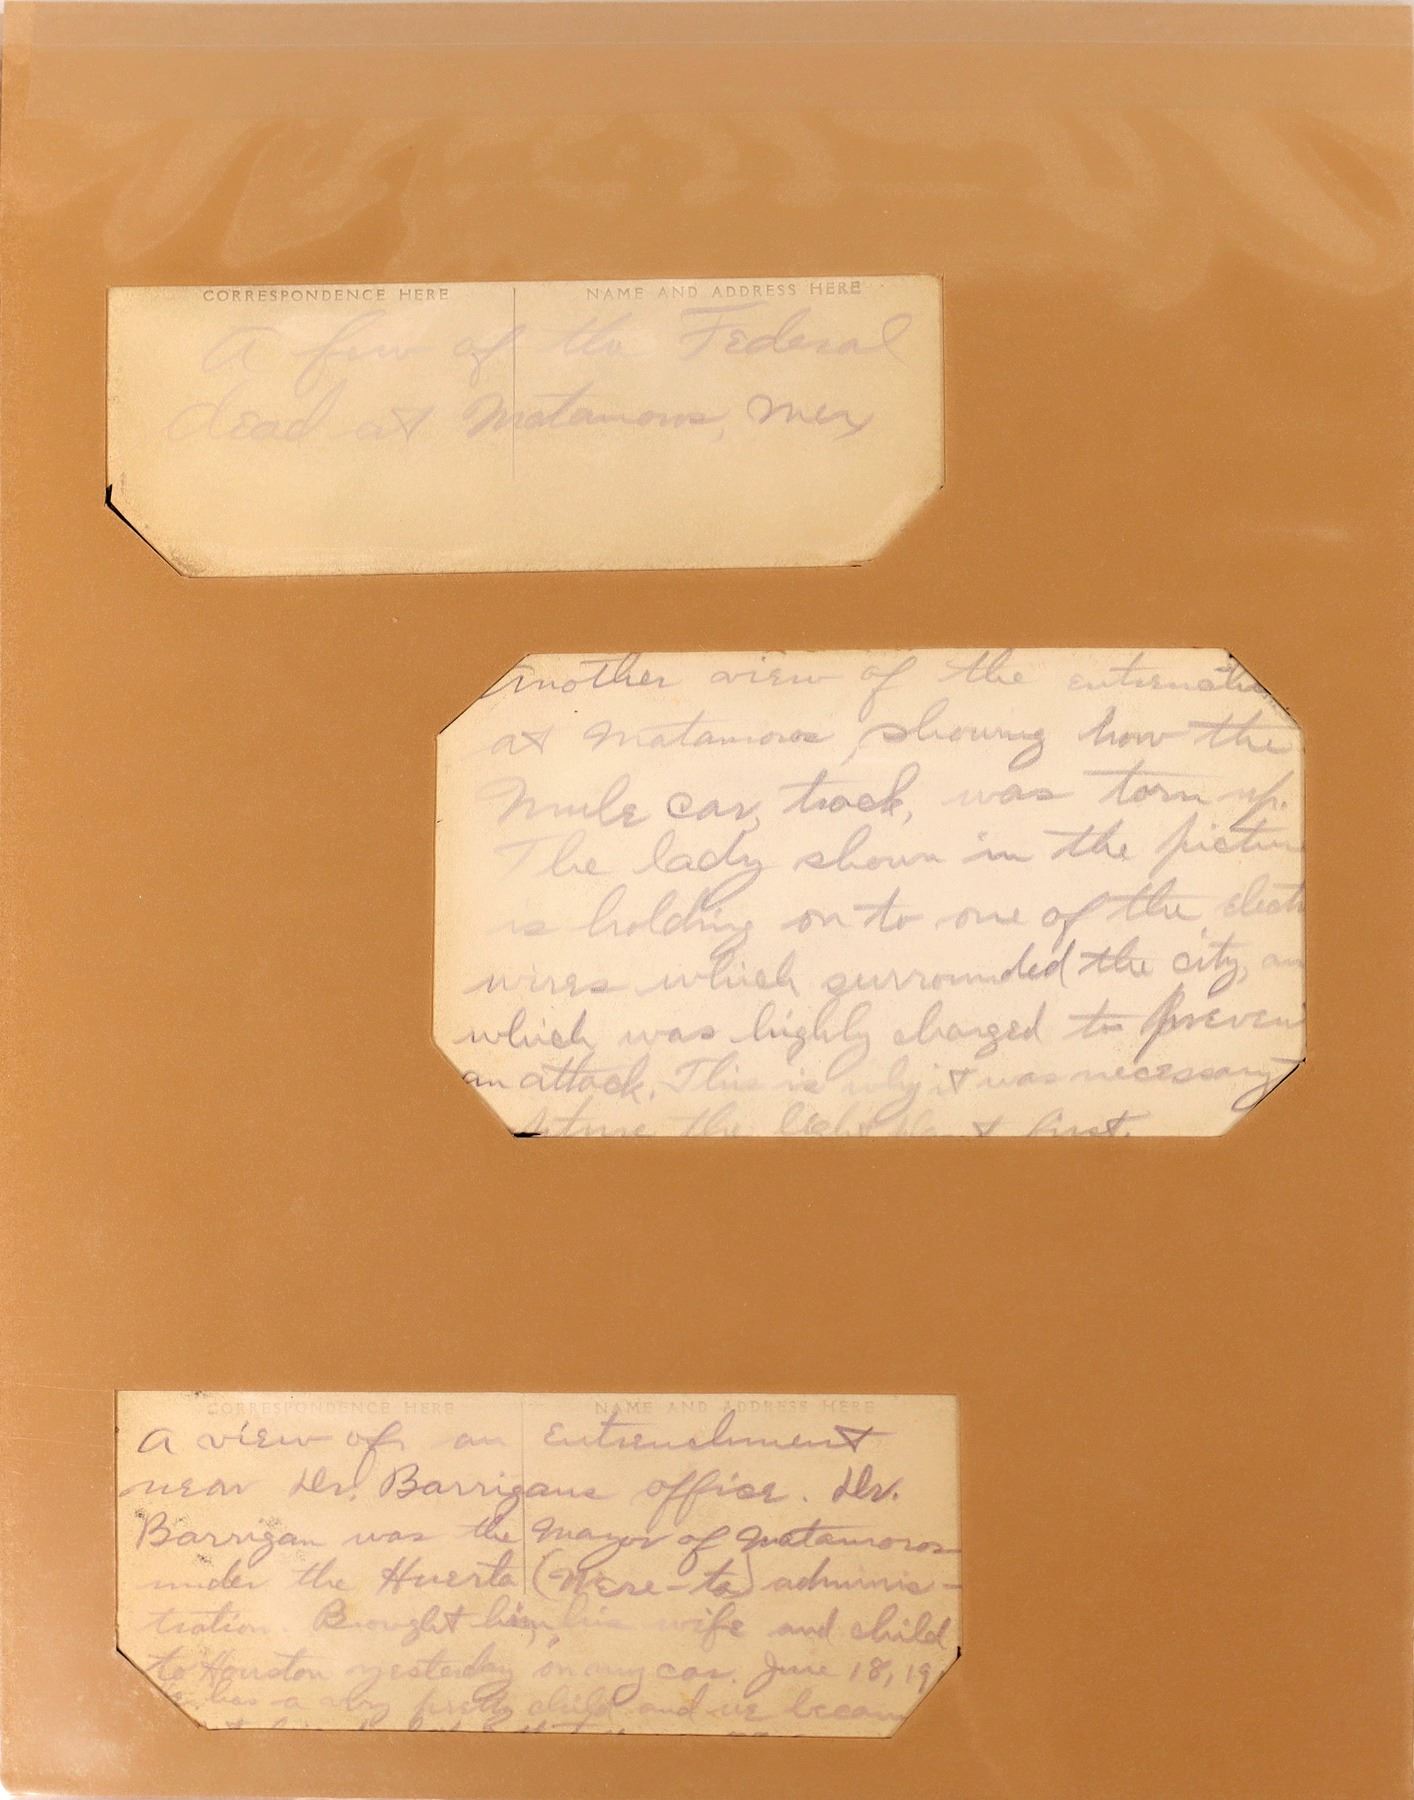 CORRESPONDENCE HERE NAME AND ADDRESS HERE
A few of the Federal
dead at Matamoros, Mex
Another view of the
at Matamoros, showing how the
Mule car, track, was torn up.
The lady shown in the picture
is holding on to one of the
wires which surrounded the city,
which was highly charged to
an attack. This is why it was necessary
the light plant first.
CORRESPONDENCE HERE NAME AND ADDRESS HERE
A view of an entrenchment
near Dr. Barrigans office. Dr.
Barrigan was the Mayor of Matamoros
under the Huerta (Were-ta) adminis-
tration. Brought him, his wife and child
to Houston yesterday on my car. June 18, 19
has a very pretty child and we